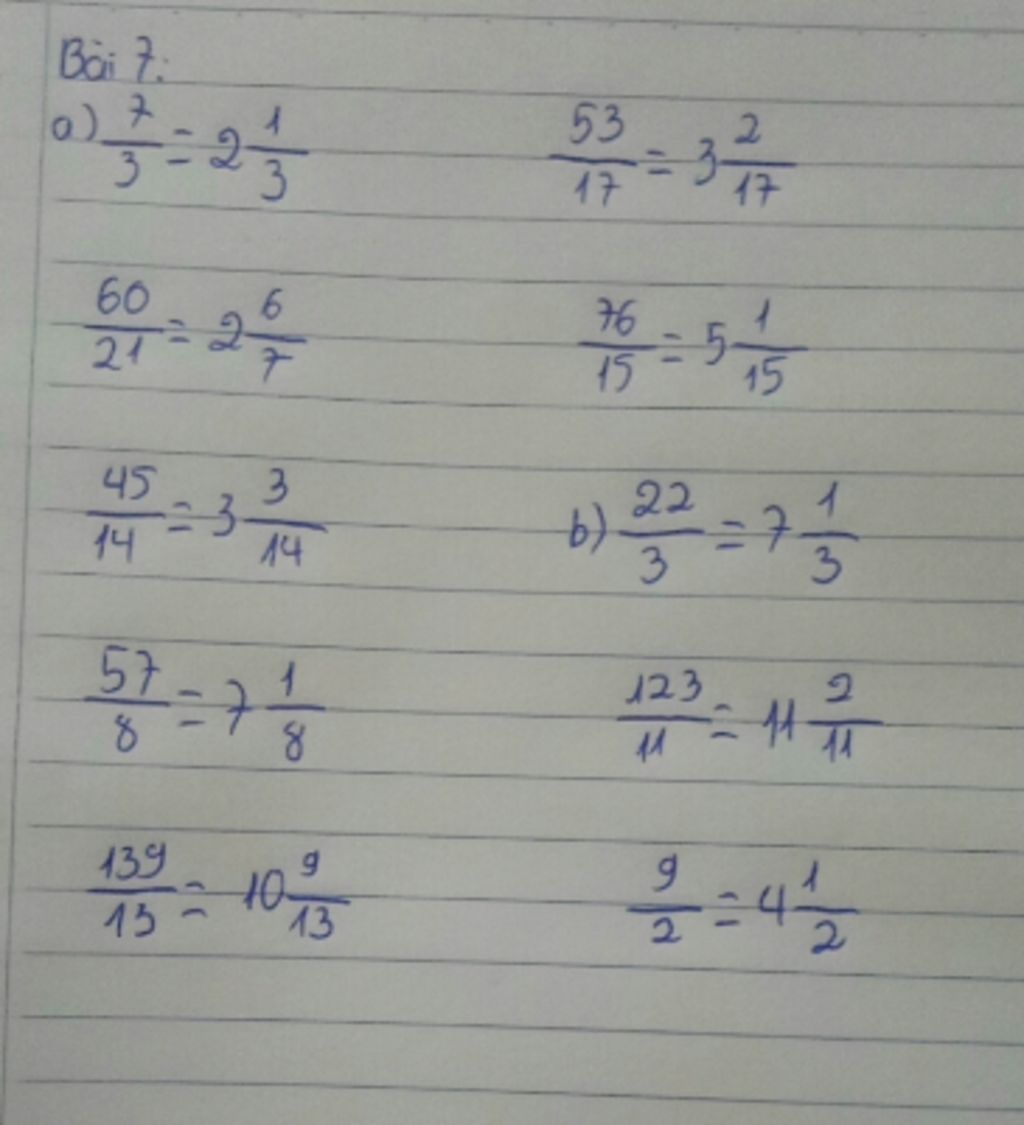 Bài 7:
a) 7/3 = 2 1/3    53/17 = 3 2/17
60/21 = 2 6/7    76/15 = 5 1/15
45/14 = 3 3/14    b) 22/3 = 7 1/3
57/8 = 7 1/8    123/11 = 11 2/11
139/13 = 10 9/13    9/2 = 4 1/2